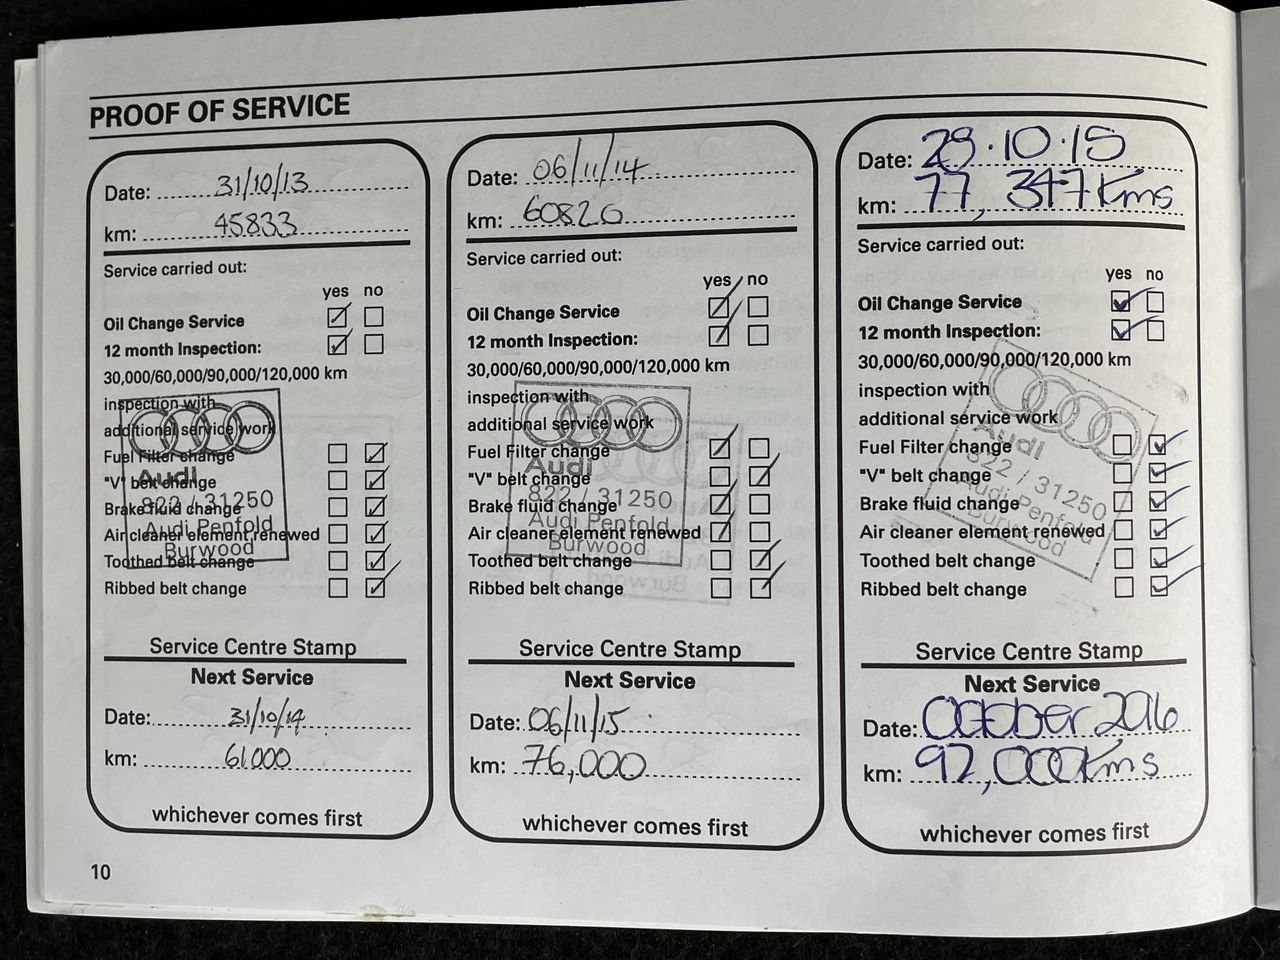 PROOF OF SERVICE
Date: 31/10/13
km: 45833
Service carried out:
yes no
Oil Change Service
12 month Inspection:
30,000/60,000/90,000/120,000 km
inspection with
additional service work
Fuel Filter change
"V" belt change
Brake fluid change
Air cleaner element renewed
Toothed belt change
Ribbed belt change
Audi
822 / 31250
Audi Penfold
Burwood
Service Centre Stamp
Next Service
Date: 31/10/14
km: 61000
whichever comes first
Date: 06/11/14
km: 60826
Service carried out:
yes no
Oil Change Service
12 month Inspection:
30,000/60,000/90,000/120,000 km
inspection with
additional service work
Fuel Filter change
"V" belt change
Brake fluid change
Air cleaner element renewed
Toothed belt change
Ribbed belt change
Audi
822 / 31250
Audi Penfold
Burwood
Service Centre Stamp
Next Service
Date: 06/11/15
km: 76,000
whichever comes first
Date: 29.10.15
km: 77, 347 Kms
Service carried out:
yes no
Oil Change Service
12 month Inspection:
30,000/60,000/90,000/120,000 km
inspection with
additional service work
Fuel Filter change
"V" belt change
Brake fluid change
Air cleaner element renewed
Toothed belt change
Ribbed belt change
Audi
822 / 31250
Audi Penfold
Burwood
Service Centre Stamp
Next Service
Date: October 2016
km: 92,000Kms
whichever comes first
10